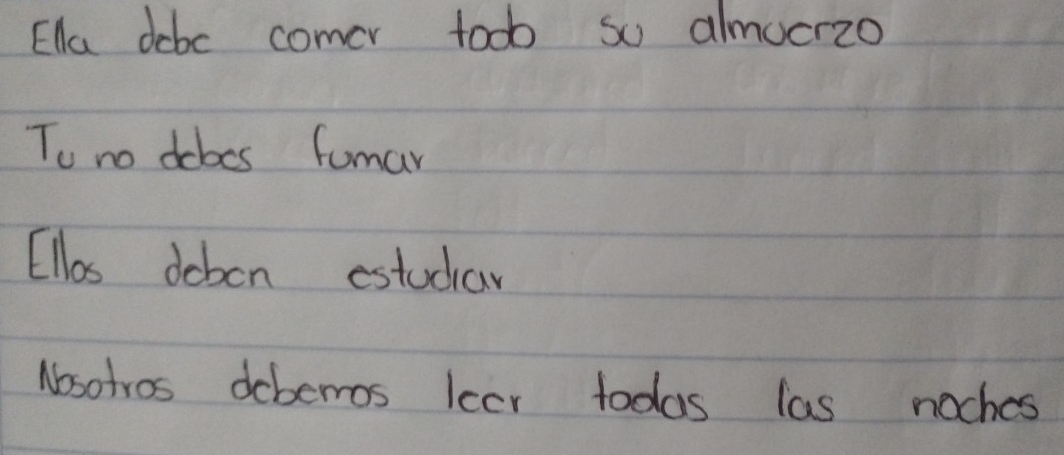 Ella debe comer todo su almuerzo
Tu no debes fumar
Ellos deben estudiar
Nosotros debemos leer todas las noches